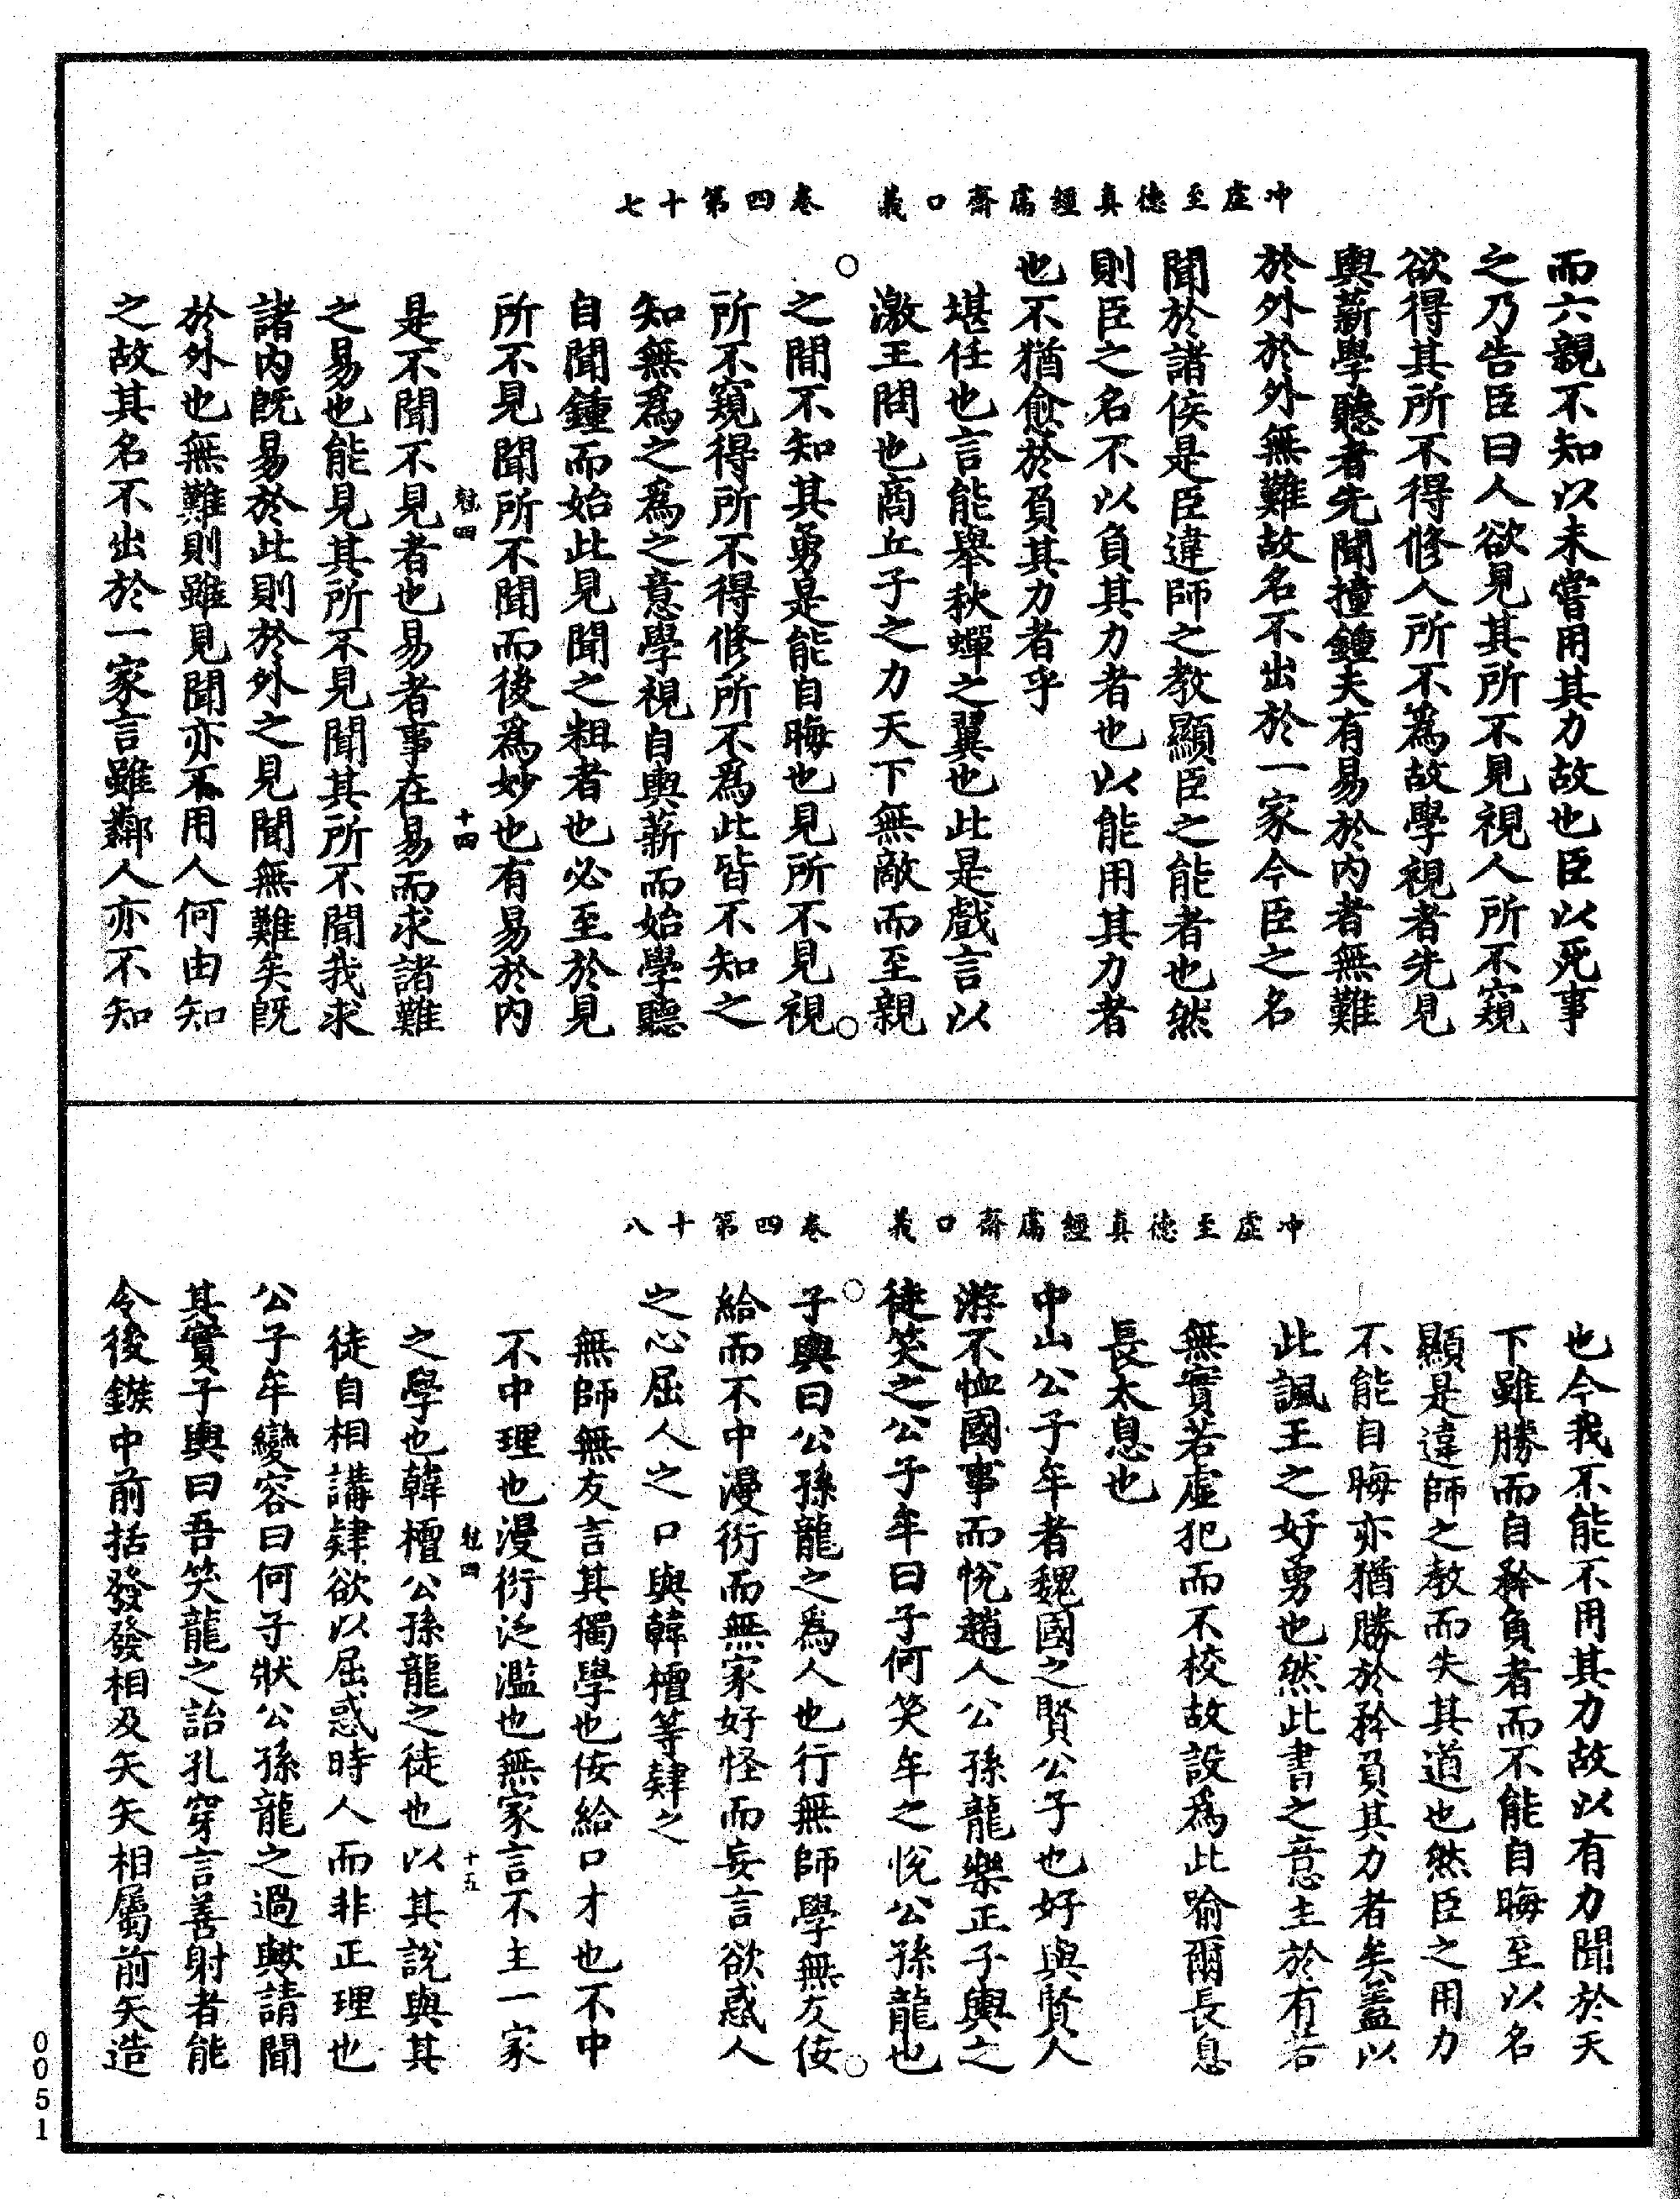 冲虛至德真經鬳齋口義　卷四第十七
而六親不知以未嘗用其力故也臣以死事
之乃告臣曰人欲見其所不見視人所不窺
欲得其所不得修人所不為故學視者先見
輿薪學聽者先聞撞鐘夫有易於內者無難
於外於外無難故名不出於一家今臣之名
聞於諸侯是臣違師之教顯臣之能者也然
則臣之名不以負其力者也以能用其力者
也不猶愈於負其力者乎
堪任也言能舉秋蟬之翼也此是戲言以
激王問也商丘子之力天下無敵而至親
之間不知其勇是能自晦也見所不見視
所不窺得所不得修所不爲此皆不知之
知無爲之爲之意學視自輿薪而始學聽
自聞鐘而始此見聞之粗者也必至於見
所不見聞所不聞而後爲妙也有易於內
魁四　十四
是不聞不見者也易者事在易而求諸難
之易也能見其所不見聞其所不聞我求
諸內旣易於此則於外之見聞無難矣旣
於外也無難則雖見聞亦不用人何由知
之故其名不出於一家言雖鄰人亦不知
冲虛至德真經鬳齋口義　卷四第十八
也今我不能不用其力故以有力聞於天
下雖勝而自矜負者而不能自晦至以名
顯是違師之教而失其道也然臣之用力
不能自晦亦猶勝於矜負其力者矣蓋以
此諷王之好勇也然此書之意主於有若
無實若虛犯而不校故設爲此喻爾長息
長太息也
中山公子牟者魏國之賢公子也好與賢人
游不恤國事而悅趙人公孫龍樂正子輿之
徒笑之公子牟曰子何笑牟之悅公孫龍也
子輿曰公孫龍之爲人也行無師學無友佞
給而不中漫衍而無家好怪而妄言欲惑人
之心屈人之口與韓檀等肄之
無師無友言其獨學也佞給口才也不中
不中理也漫衍泛濫也無家言不主一家
魁四　十五
之學也韓檀公孫龍之徒也以其說與其
徒自相講肄欲以屈惑時人而非正理也
公子牟變容曰何子狀公孫龍之過歟請聞
其實子輿曰吾笑龍之詒孔穿言善射者能
令後鏃中前括發發相及矢矢相屬前矢造
0051